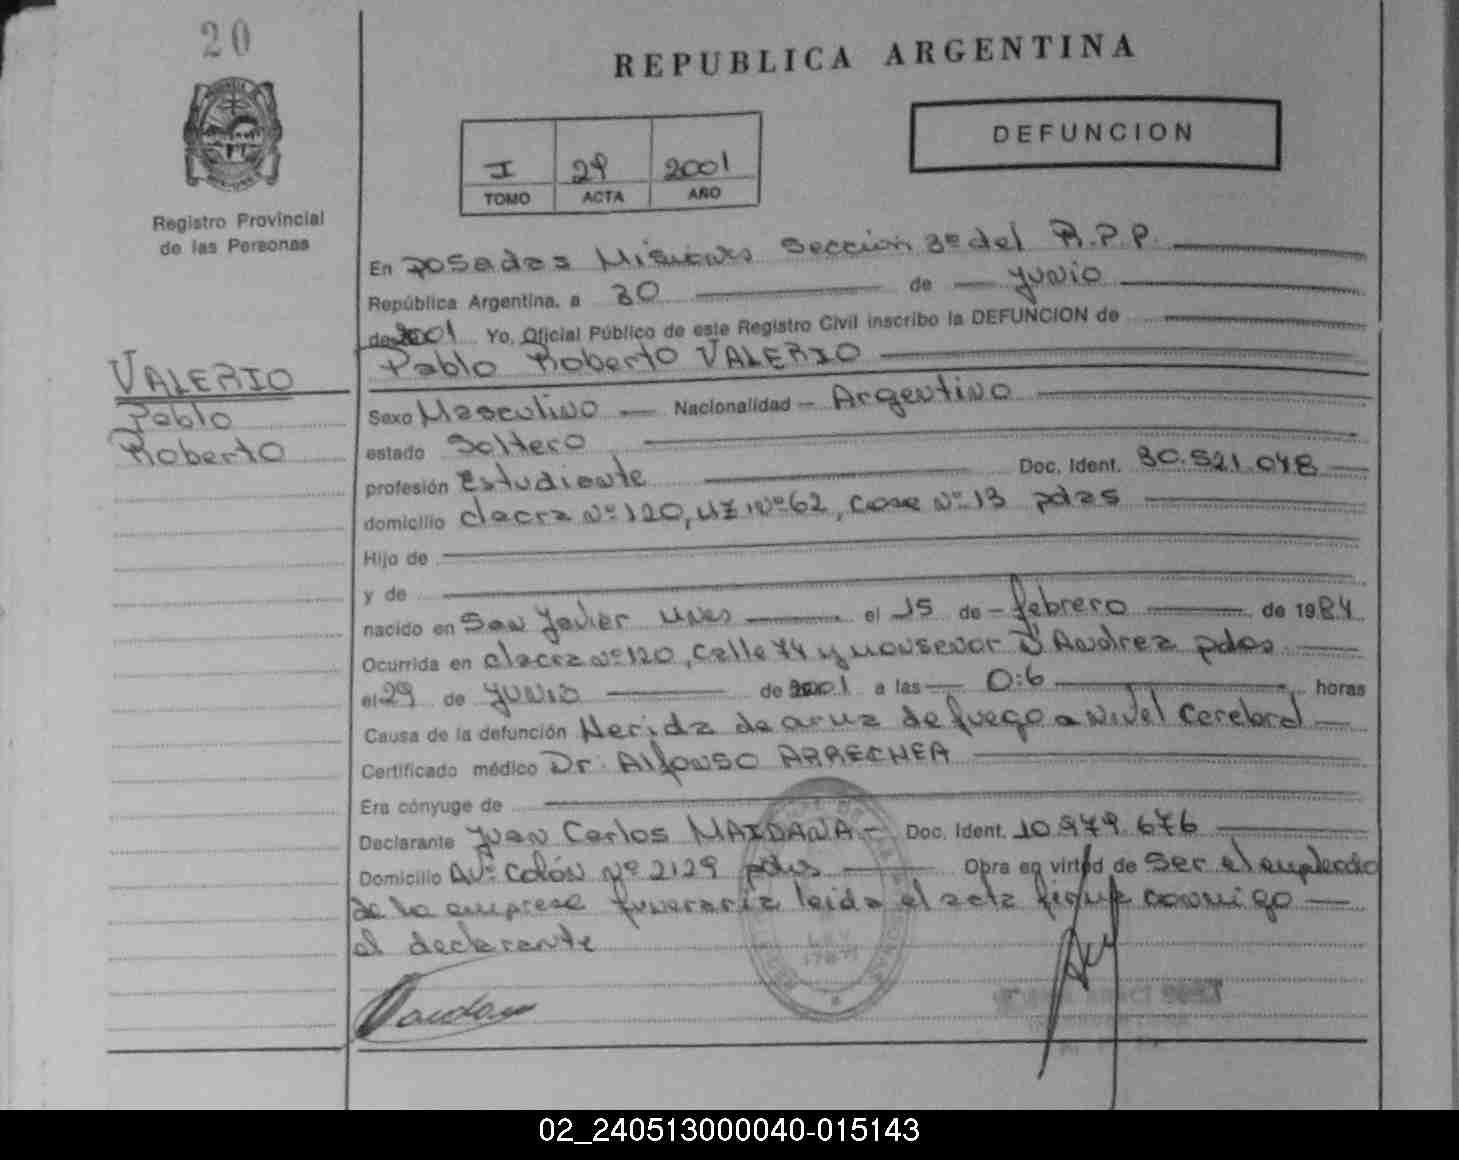 20
REPUBLICA ARGENTINA
DEFUNCION
I 29 2001
TOMO ACTA AÑO
Registro Provincial
de las Personas
En Posadas Misiones Sección 3º del R.P.P.
República Argentina, a 30 de Junio
de 2001 Yo, Oficial Público de este Registro Civil inscribo la DEFUNCION de
Pablo Roberto VALERIO
VALERIO
Pablo
Roberto
Sexo Masculino Nacionalidad Argentino
estado Soltero
profesión Estudiante Doc. Ident. 30.521.048
domicilio chacra Nº 120, Mz Nº 62, Case Nº 13 pdas
Hijo de
y de
nacido en San Javier Mnes el 15 de febrero de 1984
Ocurrida en chacra Nº 120, Calle 74 y Monseñor D'Andrea pdas
el 29 de Junio de 2001 a las 0:6 horas
Causa de la defunción Herida de arma de fuego a Nivel Cerebral
Certificado médico Dr. Alfonso ARRECHEA
Era cónyuge de
Declarante Juan Carlos MAIDANA Doc. Ident. 10.979.676
Domicilio Avº Colón Nº 2129 pdas Obra en virtud de Ser el empleado
de la empresa funeraria leida el acta firma conmigo
el declarante
LEY
02_240513000040-015143